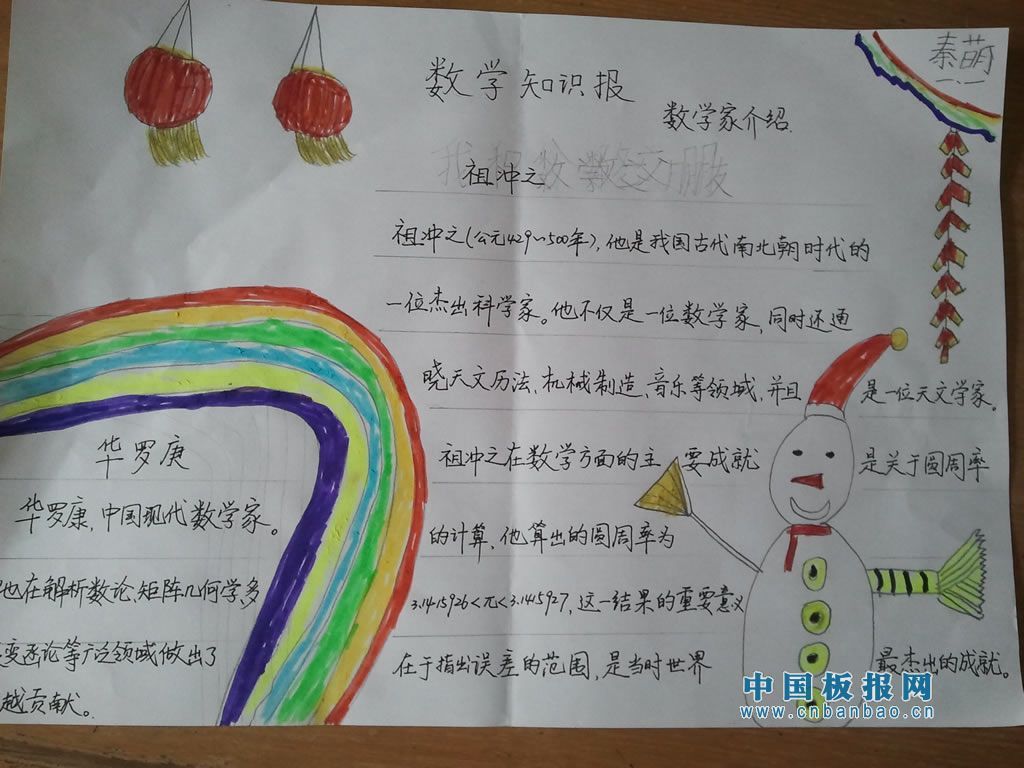 数学知识报
秦萌
一.一
数学家介绍.
我和数学交朋友
祖冲之
祖冲之(公元429~500年),他是我国古代南北朝时代的
一位杰出科学家。他不仅是一位数学家,同时还通
晓天文历法、机械制造、音乐等领域,并且是一位天文学家。
祖冲之在数学方面的主要成就是关于圆周率
的计算,他算出的圆周率为
3.1415926<π<3.1415927,这一结果的重要意义
在于指出误差的范围,是当时世界最杰出的成就。
华罗庚
华罗康,中国现代数学家。
他在解析数论、矩阵几何学、多
变函论等广泛领域做出了
越贡献。
中国板报网
www.cnbanbao.cn